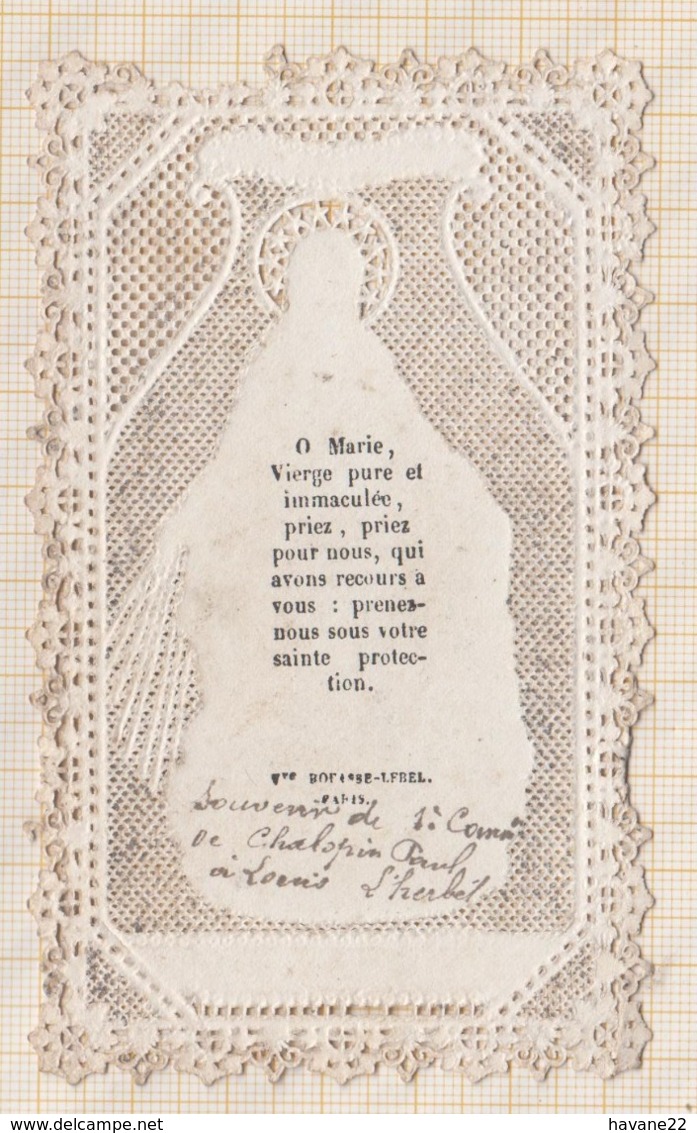 O Marie,
Vierge pure et
immaculée,
priez, priez
pour nous, qui
avons recours a
vous : prenez-
nous sous votre
sainte protec-
tion.
Vve BOUASSE-LEBEL.
PARIS.
Souvenir de 1è Comm
de Chalopin Paul
à Louis L'herbet
delcampe.net
havane22